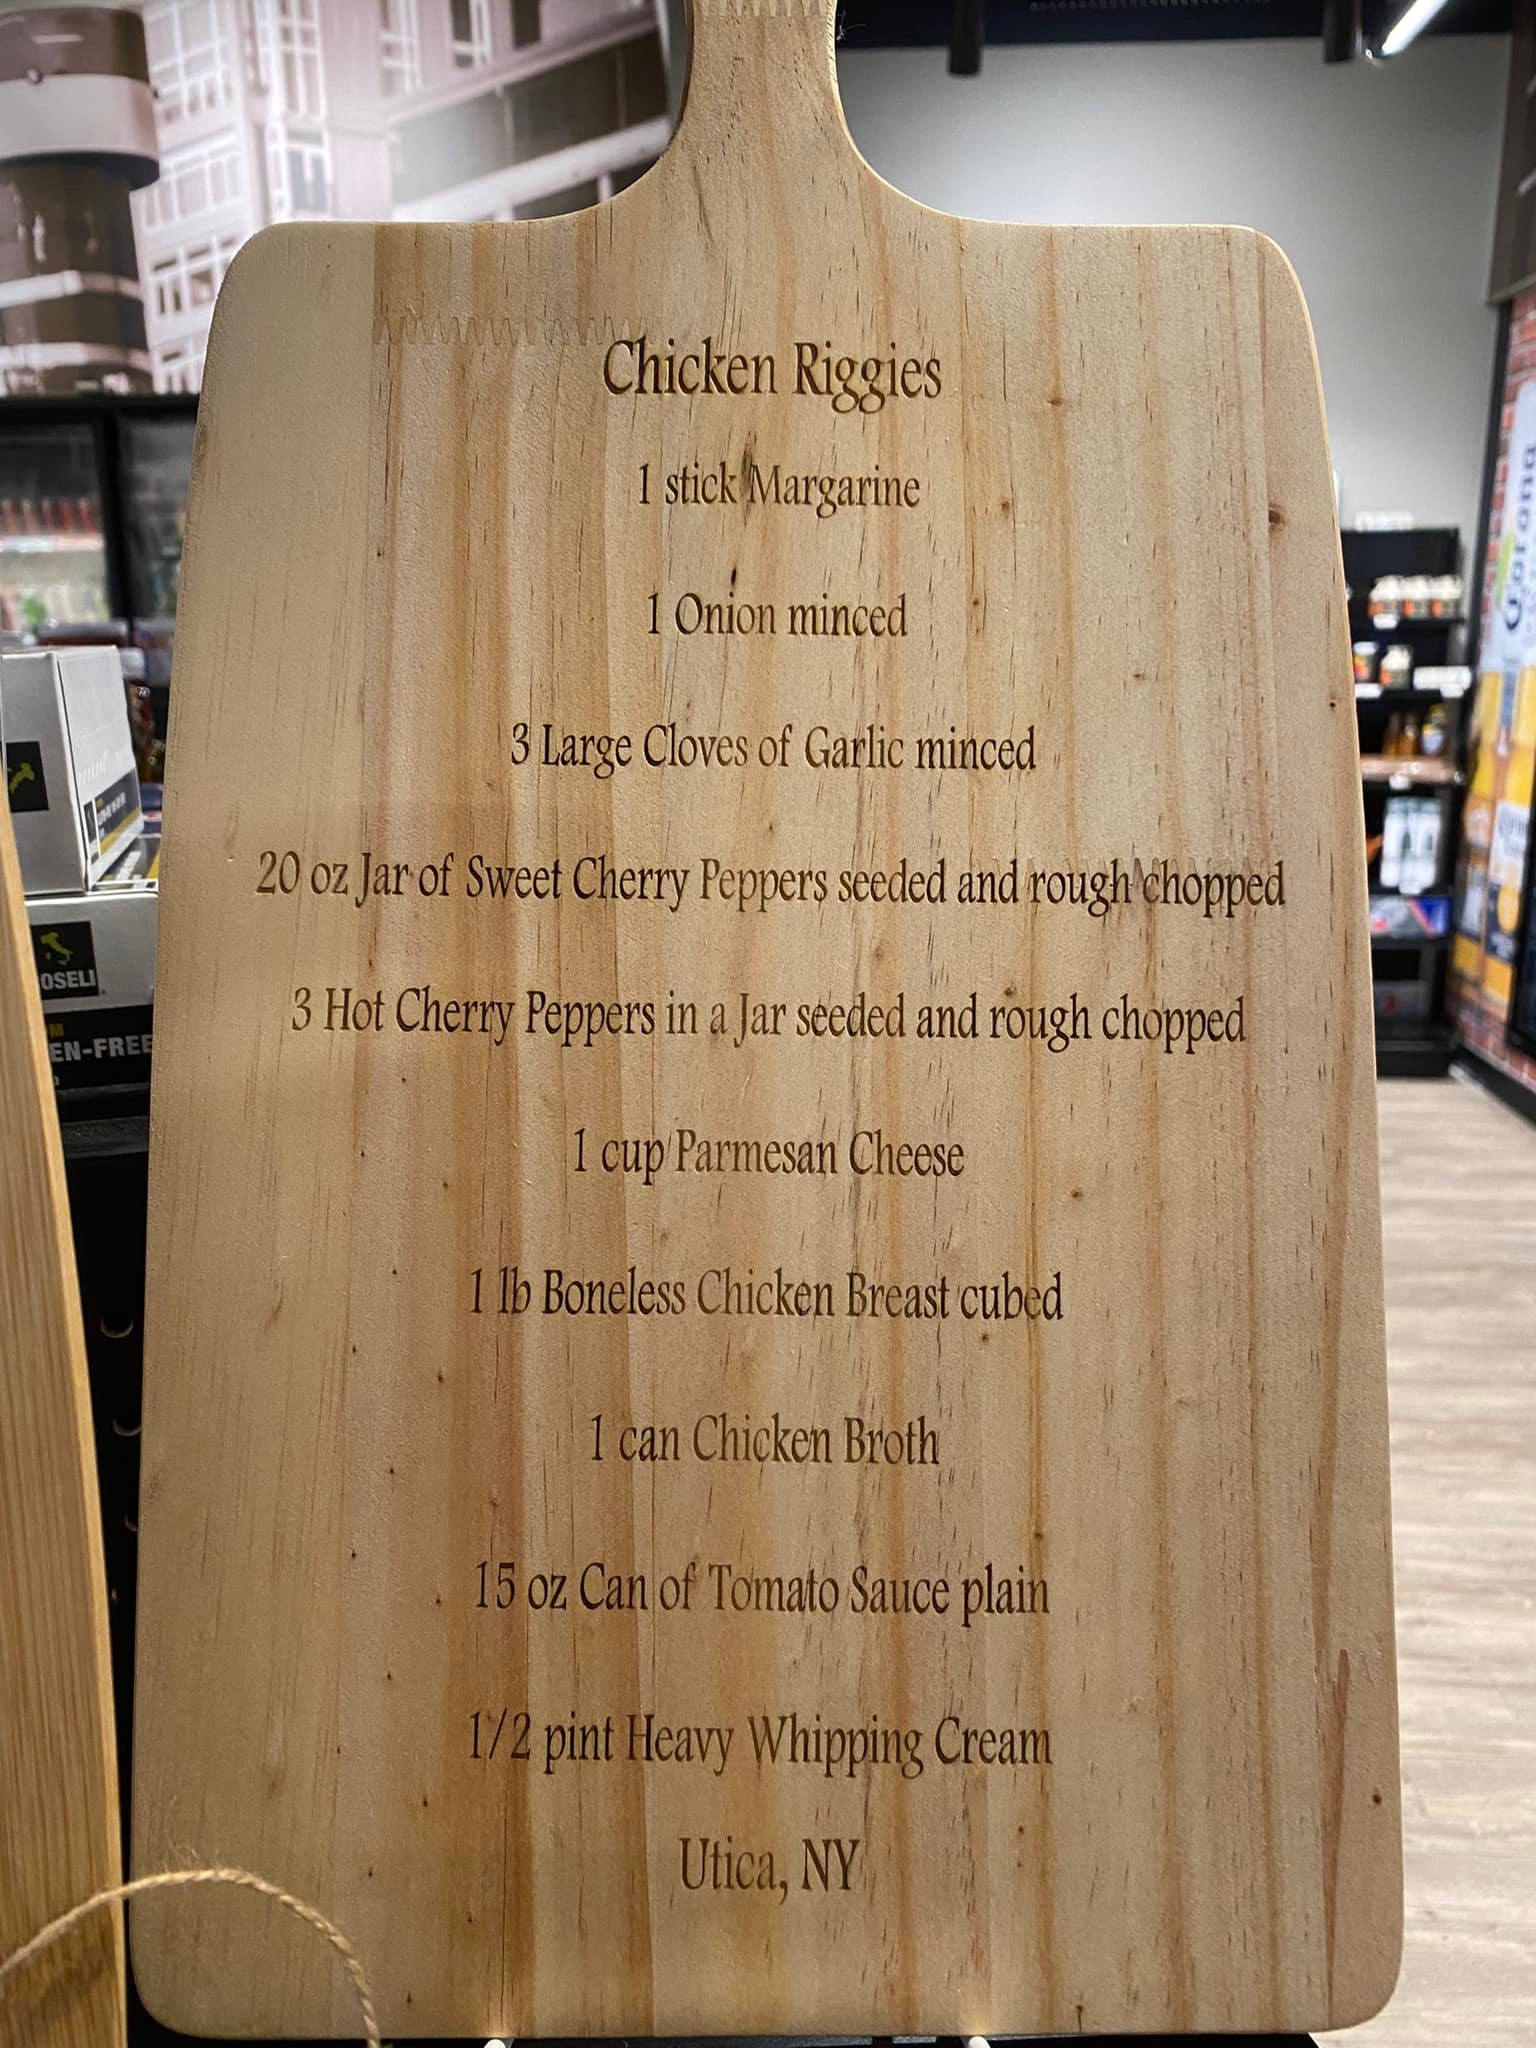 Chicken Riggies
1 stick Margarine
1 Onion minced
3 Large Cloves of Garlic minced
20 oz Jar of Sweet Cherry Peppers seeded and rough chopped
3 Hot Cherry Peppers in a Jar seeded and rough chopped
1 cup Parmesan Cheese
1 lb Boneless Chicken Breast cubed
1 can Chicken Broth
15 oz Can of Tomato Sauce plain
1/2 pint Heavy Whipping Cream
Utica, NY
OSELI
M
EN-FREE
Corona